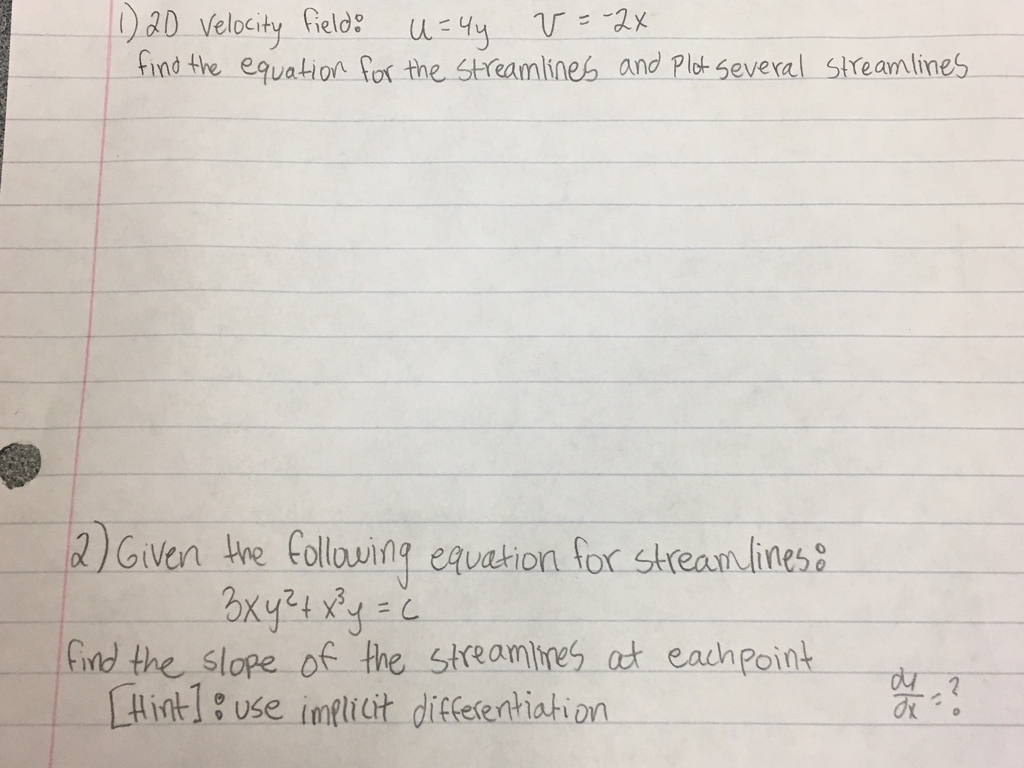 1) 2D velocity field: u = 4y v = -2x
find the equation for the streamlines and Plot several streamlines
2) Given the following equation for streamlines:
3xy² + x³y = c
find the slope of the streamlines at each point
[Hint]: use implicit differentiation dy/dx = ?